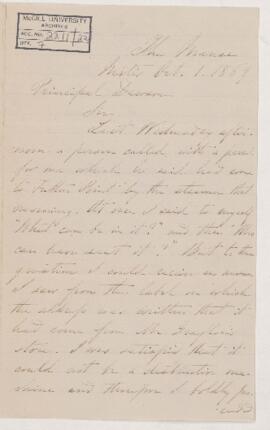 McGILL UNIVERSITY
ARCHIVES
ACC. NO. 2211/22
REF. 7
The Manse
Metis Oct. 1. 1869
Principal Dawson
Sir
Last Wednesday after-
noon a person called with a parcel
for me which he said had come
to Father Point by the steamer that
morning. At once I said to myself
"What can be in it?" and then "Who
can have sent it?" But to the
question I could receive no answer
I saw from the label on which
the address was written that it
had come from Mr
store. I was satisfied that it
could not be a destructive ma-
chine and therefore I boldly pro-